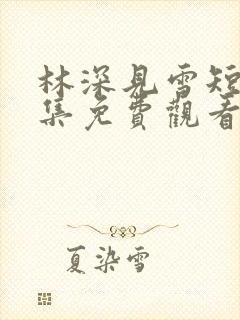 林深見雪短
集免費觀看
夏染雪